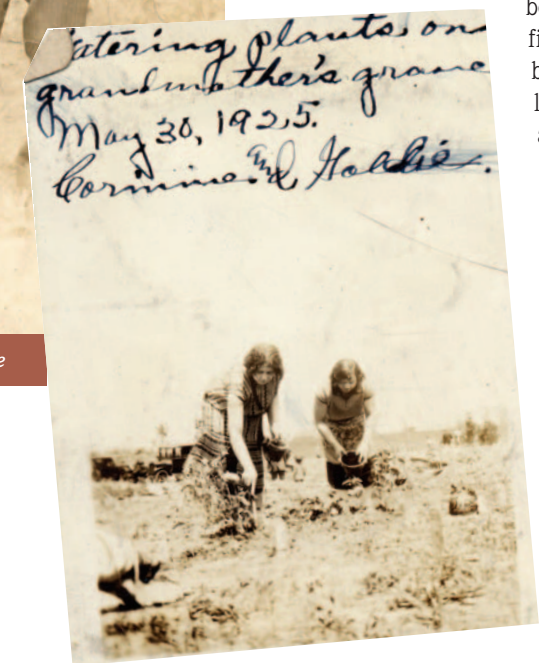 Watering plants on
grandmother's grave
May 30, 1925.
Corinine and Goldie.
e
b
fi
b
l